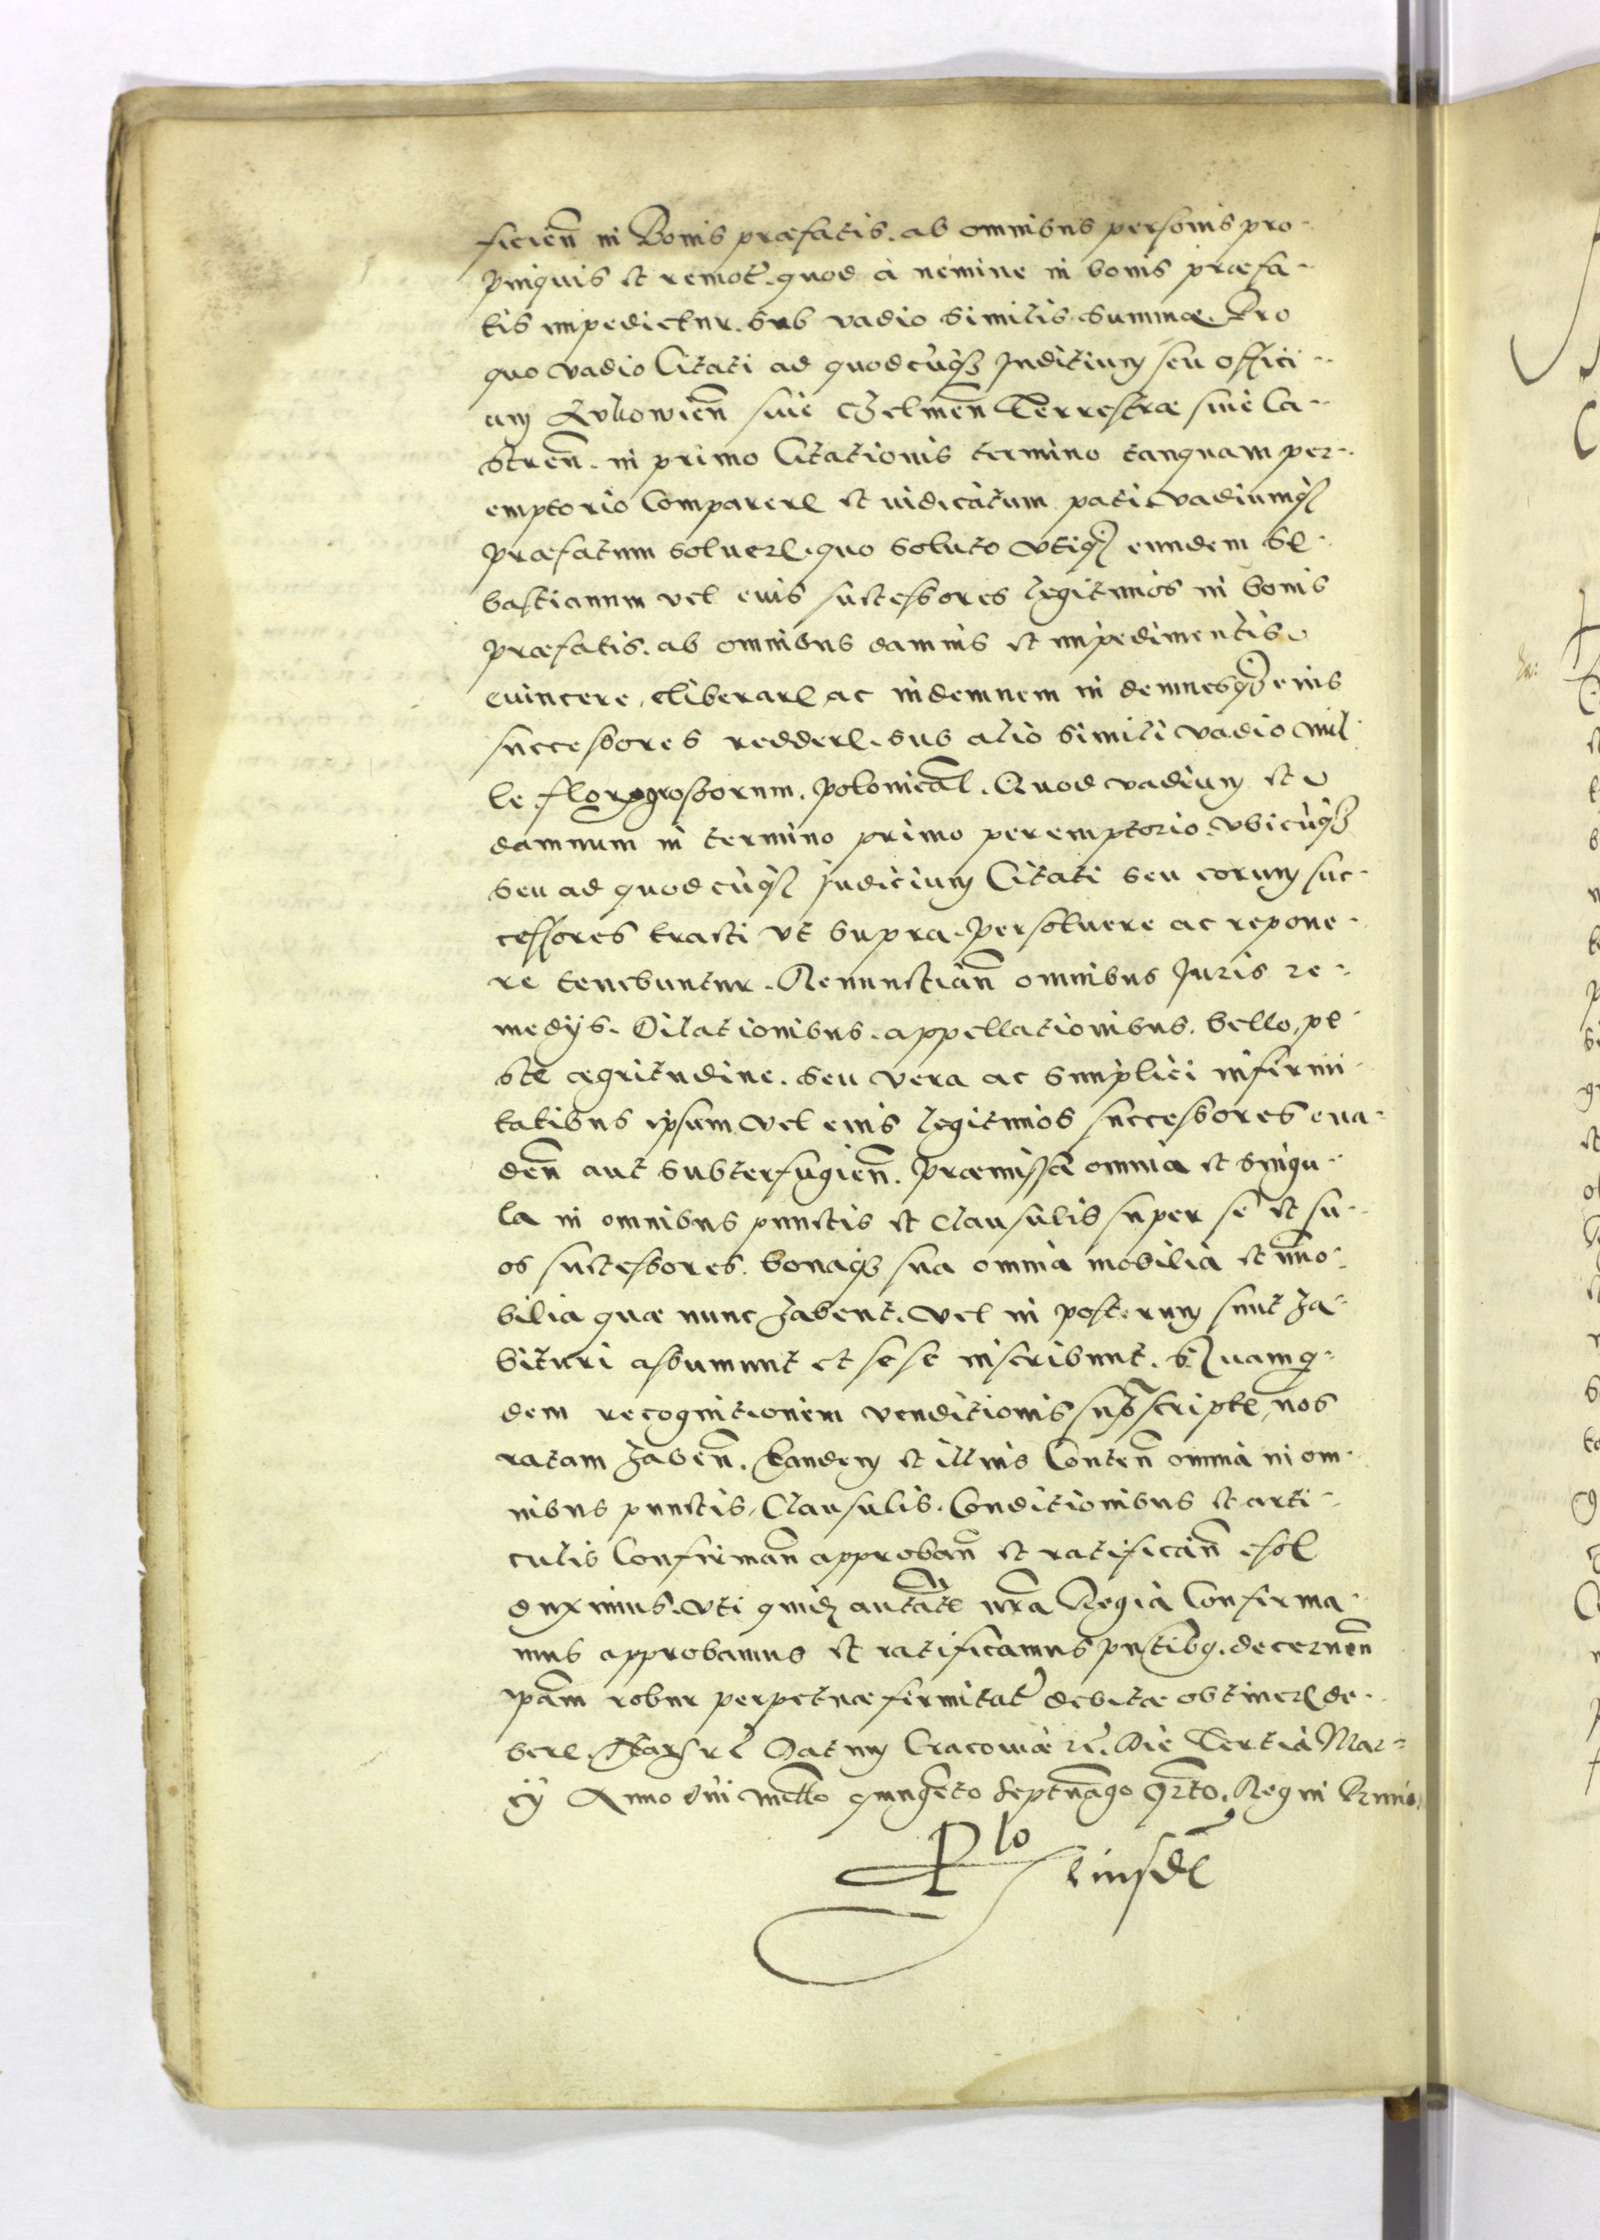 ficien̄ in Bonis præfatis. ab omnibus personis pro-
pinquis et remot. quod à nemine in bonis præfa-
tis impedietur. sub vadio similis summæ. Pro
quo vadio Citati ad quodcūq3 Juditium seu offici-
um siue Chelmen̄ Terrestræ siue Ca-
stren̄. in primo Citationis termino tanquam per-
emptorio Comparere et iudicatum pati vadiumq3
præfatum soluere. quo soluto vtiq3 eundem Se-
bastianum vel eius successores legitimos in bonis
præfatis. ab omnibus damnis et impedimentis
euincere, eliberare ac indemnem indemnesq3 eius
successores reddere. sub alio simili vadio mil-
le flor. grossorum. polonical. Quod vadium et
damnum in termino primo peremptorio. vbicūq3
seu ad quodcūq3 Judicium Citati seu eorum suc-
cessores tracti vt supra. persoluere ac repone-
re tenebuntur. Renunctian̄ omnibus Juris re-
medijs. Dilationibus. appellationibus. bello, pe-
ste ægritudine. seu vera ac simplici infirmi-
tatibus ipsum vel eius legitimos successores eua-
den̄ aut subterfugien̄. præmissa omnia et singu-
la in omnibus punctis et Clausulis super se et su-
os successores. bonaq3 sua omnia mobilia et immo-
bilia quæ nunc habent. vel in posterum sunt ha-
bituri assumunt et sese inscribunt. Quamq-
dem recognitionem venditionis suprascriptæ, nos
ratam haben̄. Eandem et illius Conten̄ omnia in om-
nibus punctis, Clausulis. Conditionibus et arti-
culis Confirman̄ approban̄ et ratifican̄ esse
duximus. vti quidem auttāte nrā Regia Confirma-
mus approbamus et ratificamus pntibq. decernen̄
ipam robur perpetuæ firmitat debitæ obtinere de-
bere. Datum Cracouiæ Die Tertia Mar-
cij Anno dni mllo quingeto septuago qrto. Regni Primo